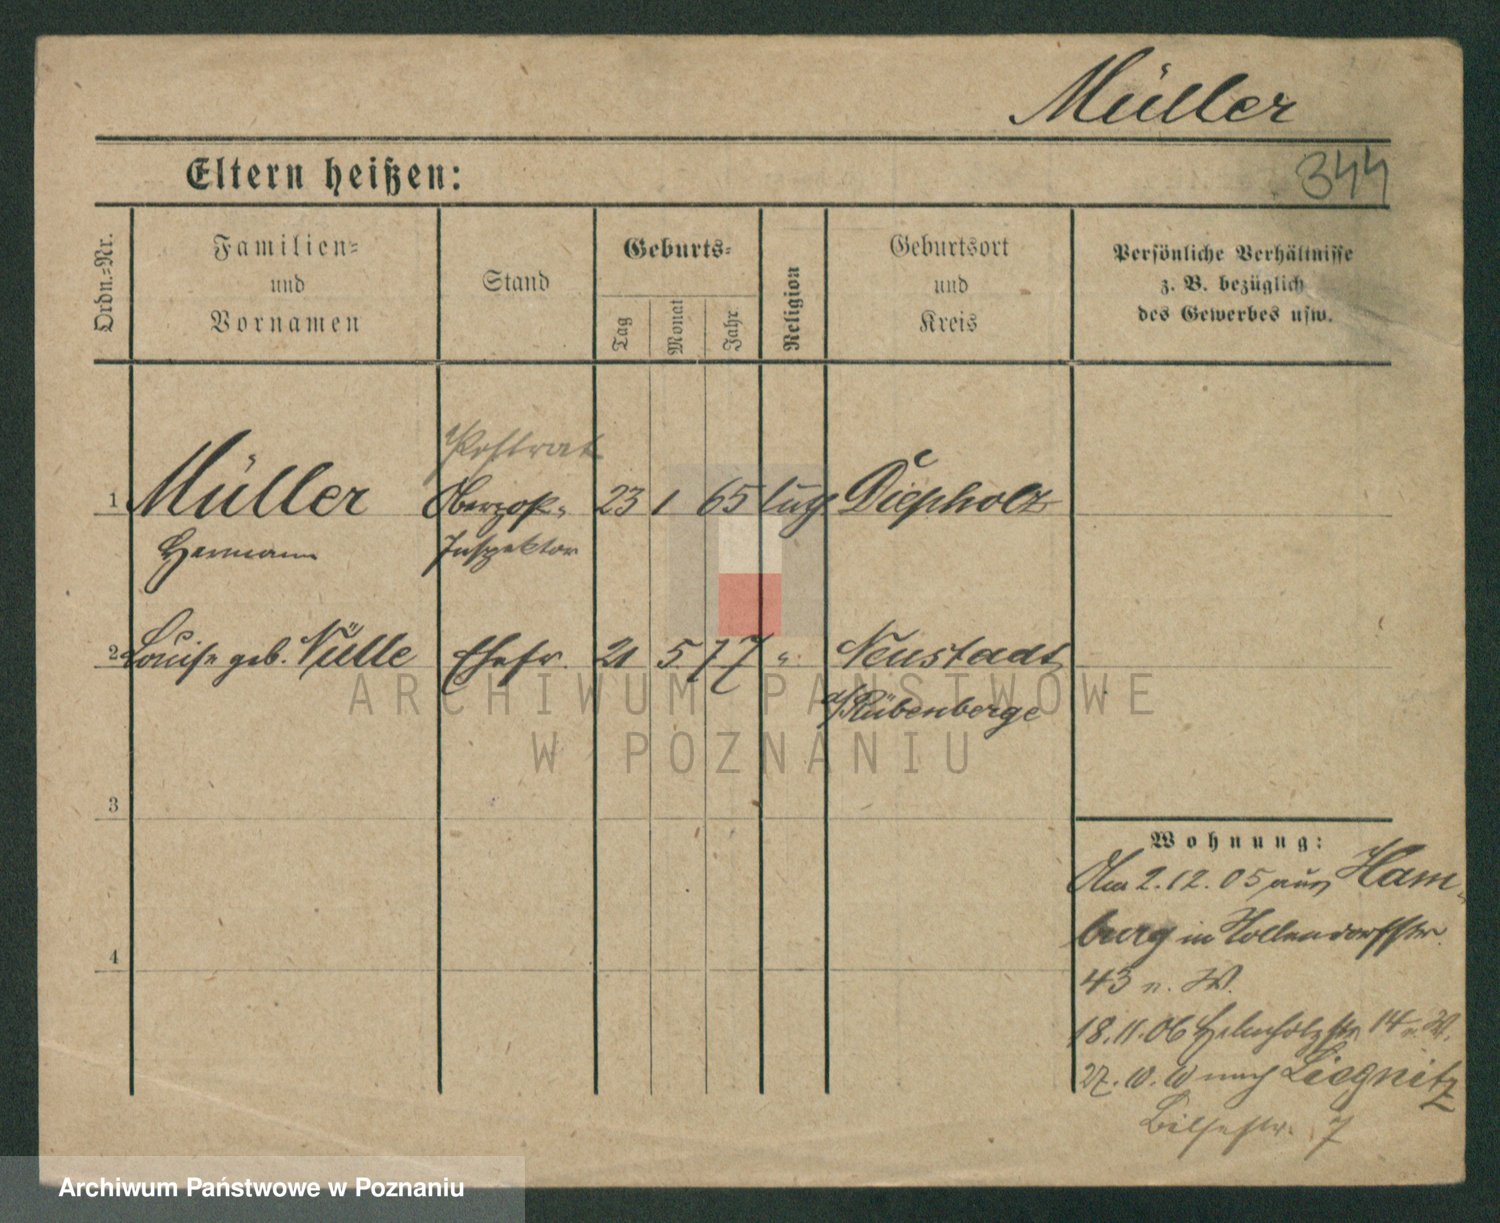 Müller
344
Eltern heißen:
Ordn.-Nr.
Familien-
und
Vornamen
Stand
Geburts-
Tag
Monat
Jahr
Religion
Geburtsort
und
Kreis
Persönliche Verhältnisse
z. B. bezüglich
des Gewerbes usw.
Postrat
1 Müller Oberpost- 23 1 65 Diepholz
Hermann Inspektor
2 Louise geb. Nülle Ehefr. 21 5 77 " Neustadt
a/Rübenberge
ARCHIWUM PAŃSTWOWE
W POZNANIU
3
4
Wohnung:
2.12.05 aus Ham-
burg in Hollendorffstr.
43 n. W.
18.11.06 Helmholzstr. 14 n. W.
27.10.10 nach Liegnitz
Bilsestr. 7
Archiwum Państwowe w Poznaniu